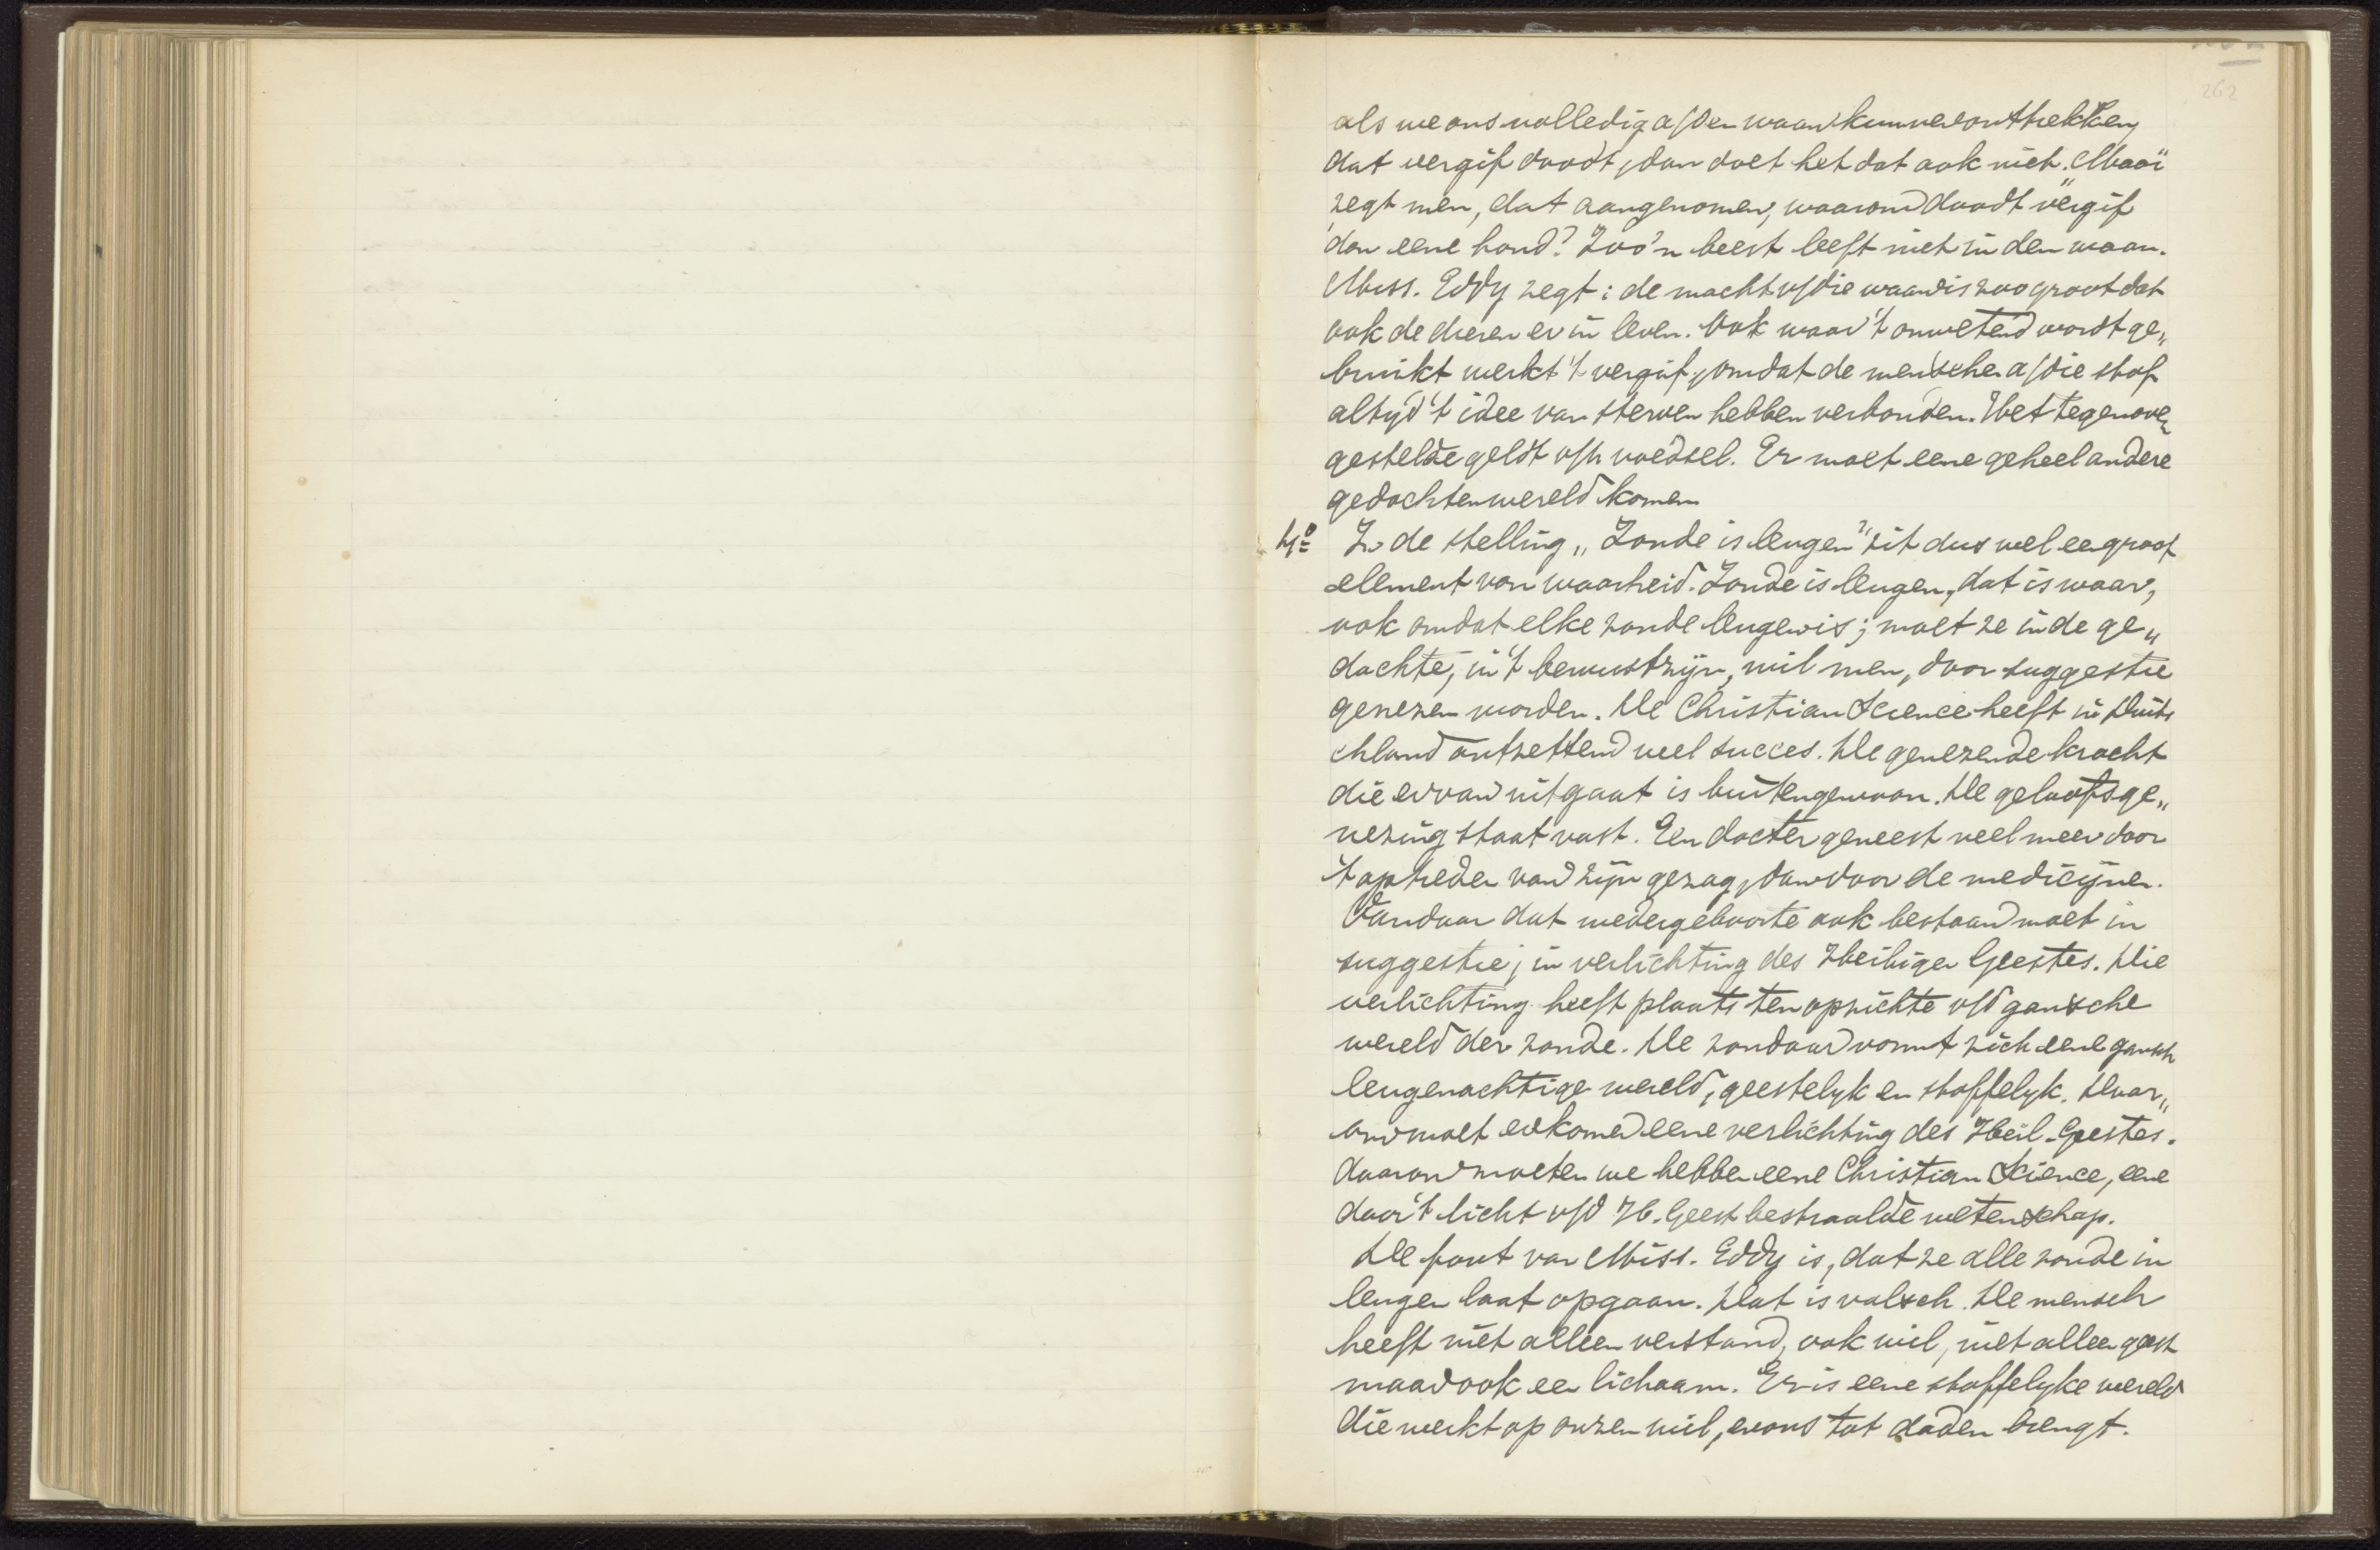 262
als we ons volledig a/den waan kunnen onttrekken
dat vergif doodt, dan doet het dat ook niet. "Mooi"
zegt men, dat aangenomen, waarom doodt "vergif
dan eene hond? Zoo'n beest leeft niet in den waan.
Miss. Eddy zegt: de macht v/die waan is zoo groot dat
ook de dieren er in leven. Ook waar 't onwetend wordt ge„
bruikt werkt 't vergif, omdat de menschen a/die stof
altyd 't idee van sterven hebben verbonden. Het tegenover„
gestelde geldt v/h voedsel. Er moet eene geheel andere
gedachtenwereld komen
4º In de stelling „Zonde is leugen" zit dus wel een groot
element van waarheid. Zonde is leugen, dat is waar,
ook omdat elke zonde leugen is; moet ze in de ge„
dachte, in 't bewustzijn, wil men, door suggestie
genezen worden. De Christian Science heeft in Duits
chland ontzettend veel succes. De genezende kracht
die ervan uitgaat is buitengewoon. De geloofsge„
nezing staat vast. Een docter geneest veel meer door
't optreden van zijn gezag, dan door de medicijnen.
Vandaar dat wedergeboorte ook bestaan moet in
suggestie; in verlichting des Heiligen Geestes. Die
verlichting heeft plaats ten opzichte v/d gansche
wereld der zonde. De zondaar vormt zich eene gansch
leugenachtige wereld, geestelyk en stoffelyk. Daar„
om moet er komen eene verlichting des Heil. Geestes.
daarom moeten we hebben eene Christian Science, eene
door 't licht v/d H. Geest bestraalde wetenschap.
De fout van Miss. Eddy is, dat ze alle zonde in
leugen laat opgaan. Dat is valsch. De mensch
heeft niet alleen verstand, ook wil, niet alleen geest
maar ook een lichaam. Er is eene stoffelyke wereld
die werkt op onzen wil, en ons tot daden brengt.